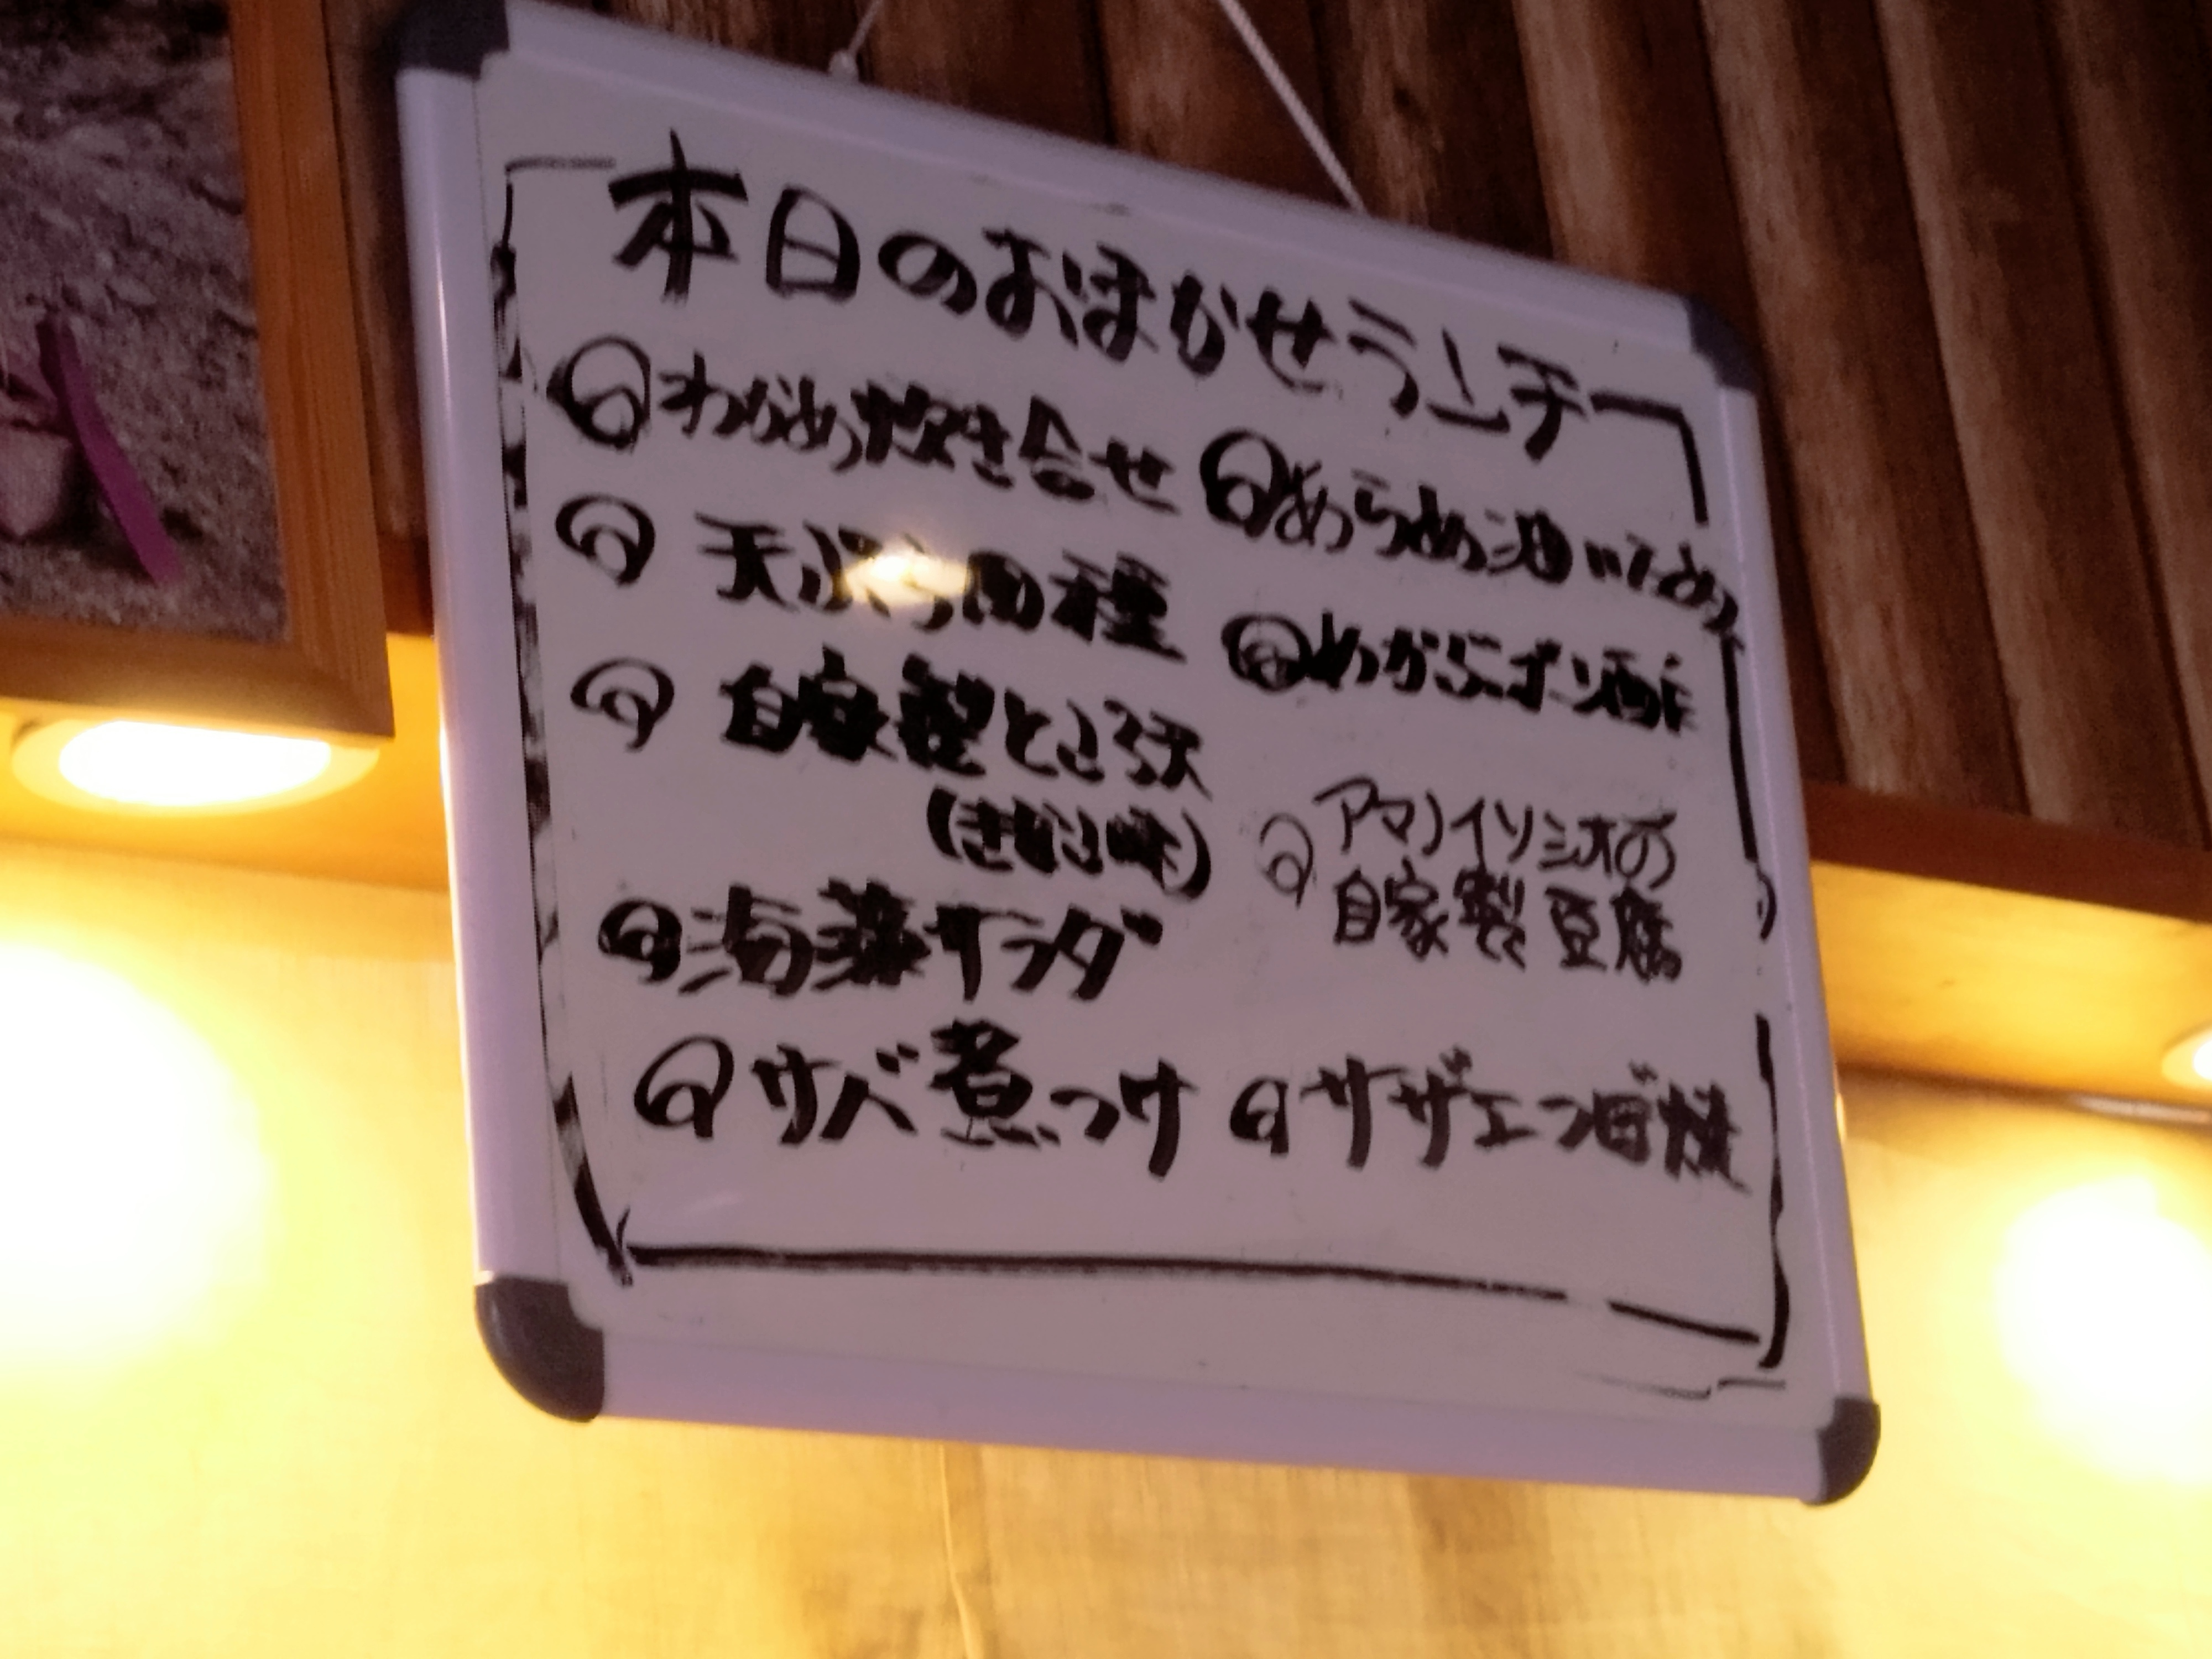 本日のおまかせランチ
わかめ炊き合せ
天ぷら四種
自家製ところ天
(きなこ味)
海藻サラダ
サバ煮つけ
あらめ油いため
めかぶポン酢
アマノイソシオの
自家製豆腐
サザエつぼ焼